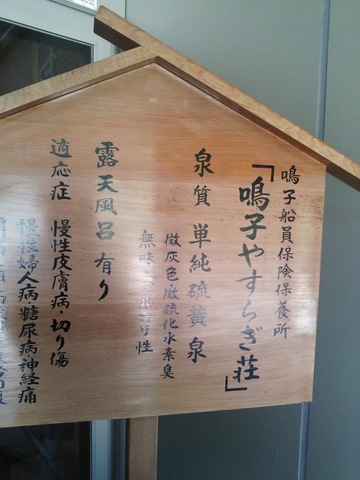 鳴子船員保険保養所
「鳴子やすらぎ荘」
泉質 単純硫黄泉
微灰色・微硫化水素臭
無味
り性
露天風呂 有り
適応症 慢性皮膚病・切り傷
慢性婦人病・糖尿病神経痛